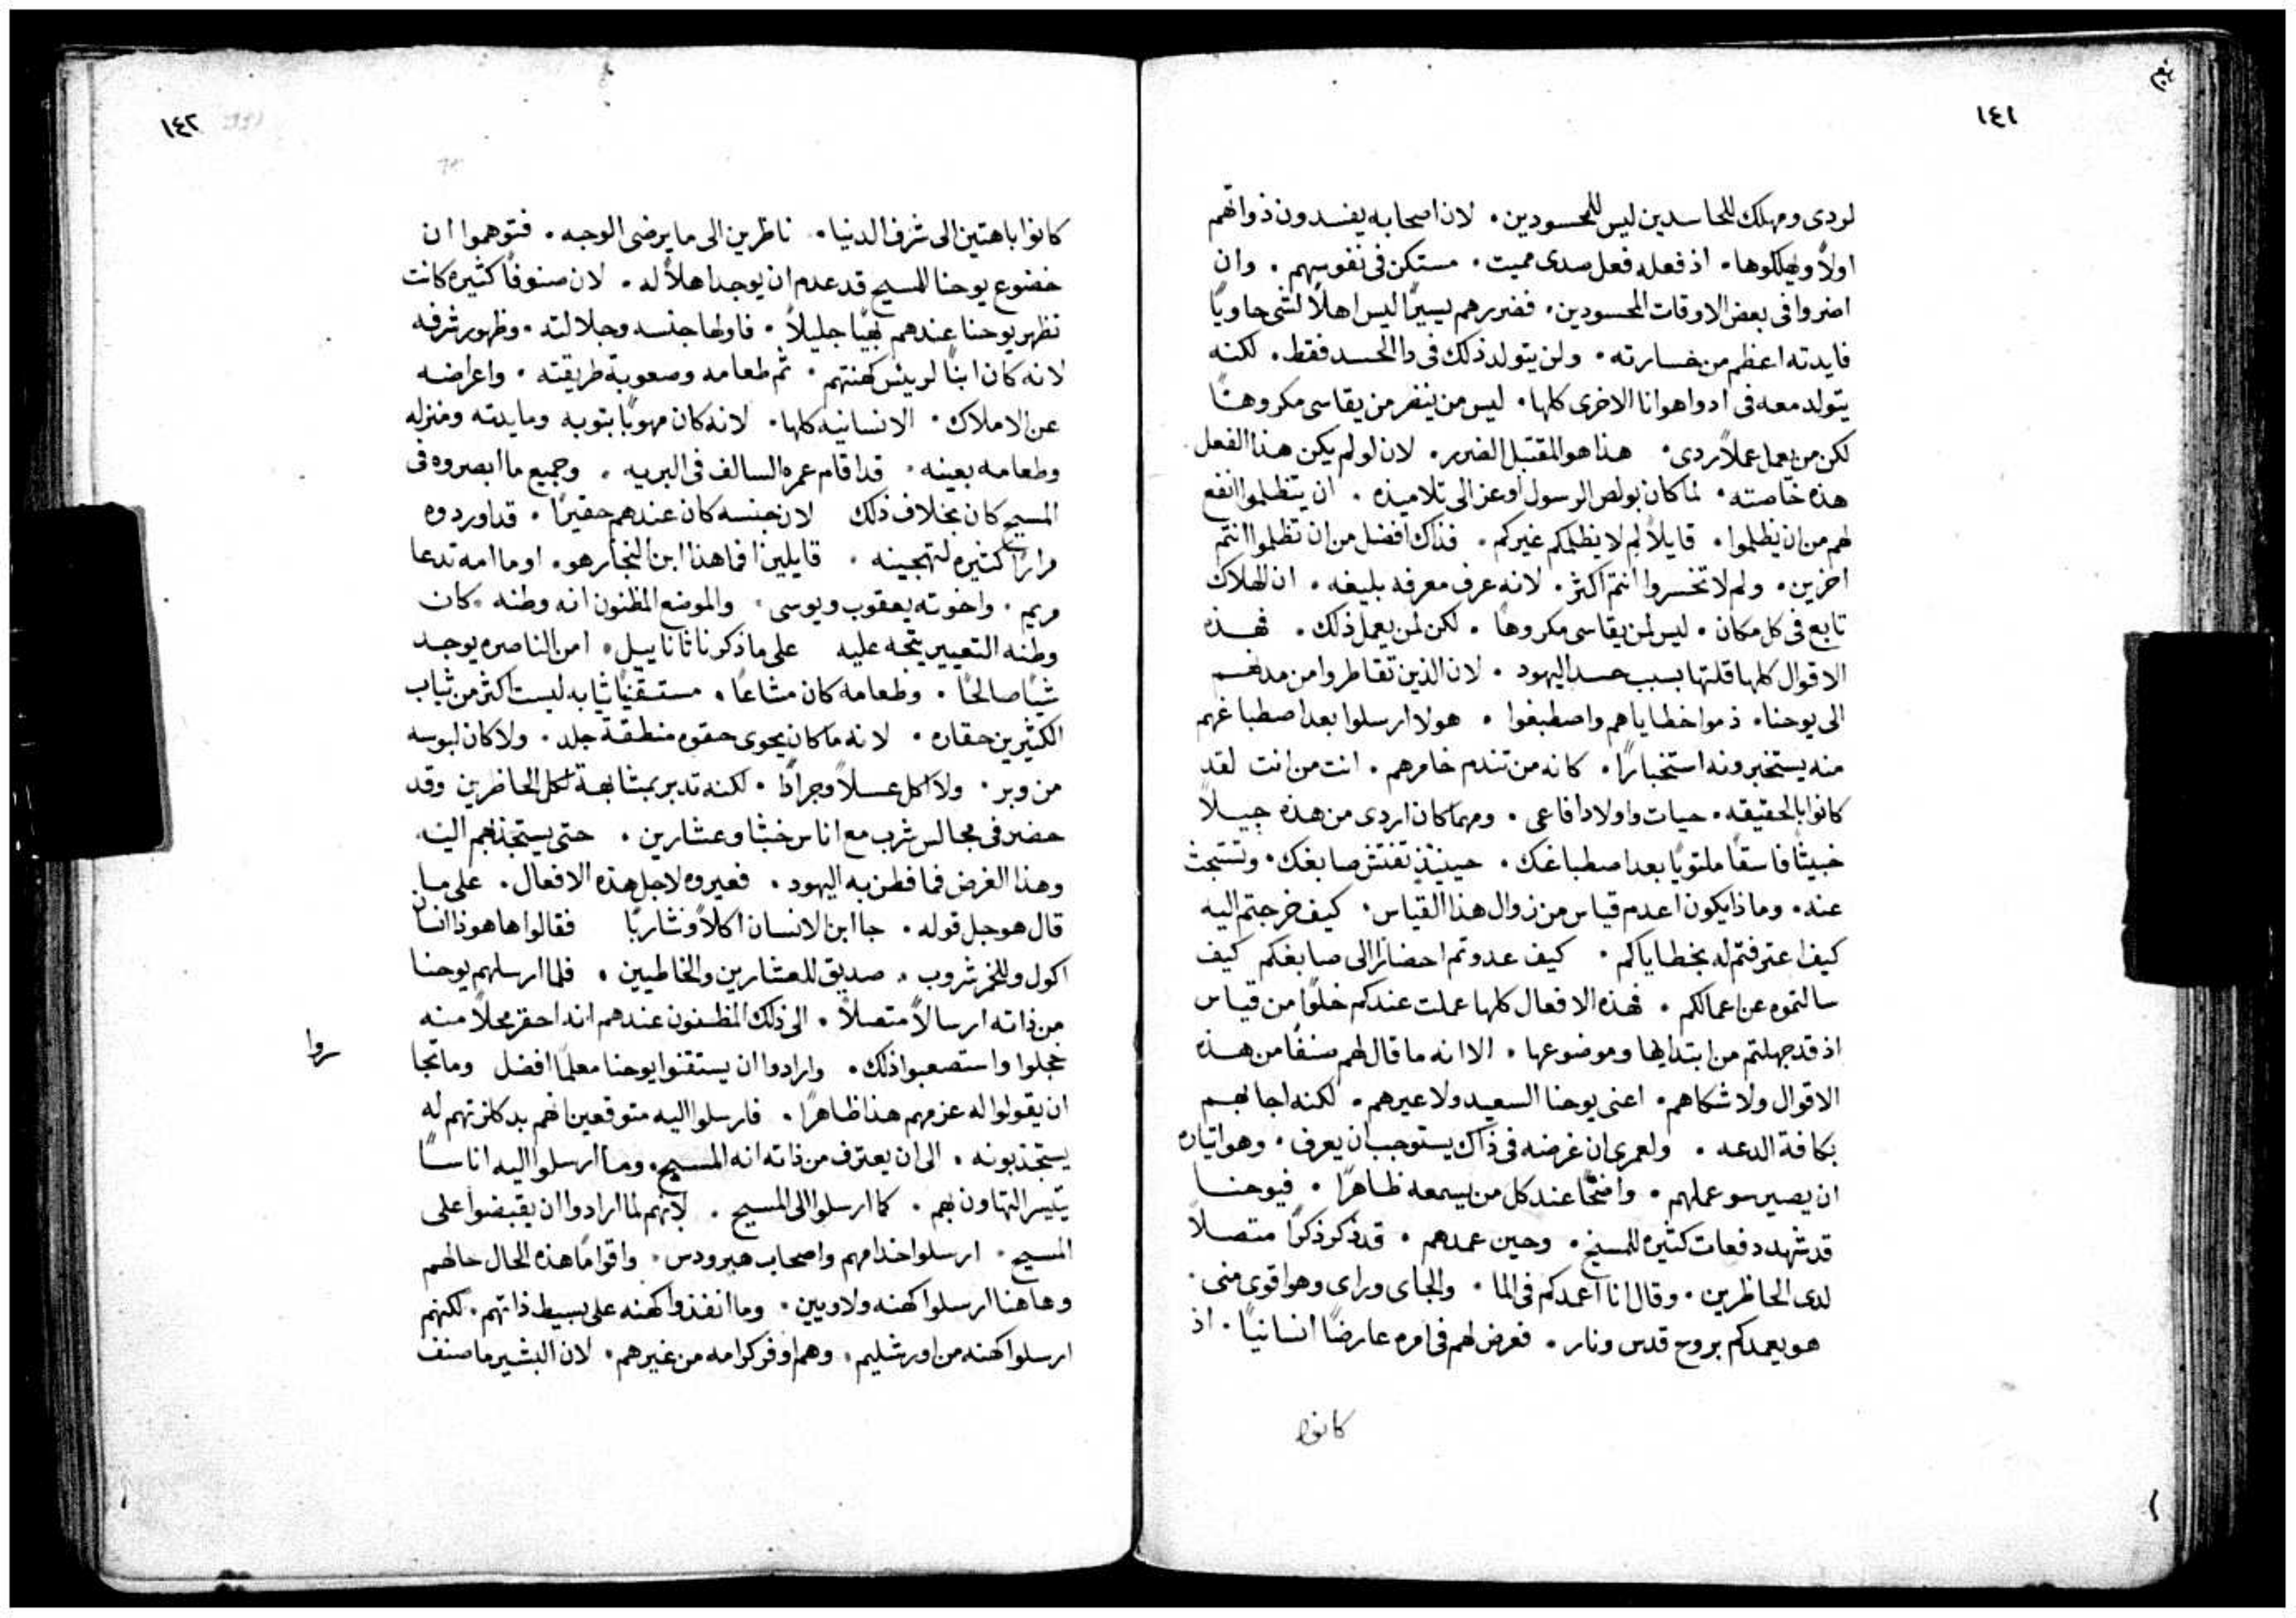 ١٤١
لردى ومهلك للحاسدين ليس للمحسودين. لان اصحابه يفسدون ذواتهم
اولاً ويهلكوها. اذ فعله فعل صدى مميت. مستكن فى نفوسهم. وان
اضروا فى بعض الاوقات المحسودين. فضررهم يسيرًا ليس اهلاً لشى حاويًا
فايدته اعظم من خسارته. ولن يتولد ذلك فى دا الحسد فقط. لكنه
يتولد معه فى ادوا هوانا الاخرى كلها. ليس من ينضر من يقاسى مكروهًا
لكن من يعمل عملاً ردى. هذا هو المقتبل الضرر. لان لو لم يكن هذا الفعل
هذه خاصته. لما كان بولص الرسول اوعز الى تلاميذه. ان يتظلموا انفع
لهم من ان يظلموا. قايلاً لم لا يظلمكم غيركم. فذاك افضل من ان تظلموا انتم
اخرين. ولم لا تخسروا انتم اكثر. لانه عرف معرفه بليغه. ان الهلاك
تابع فى كل مكان. ليس لمن يقاسى مكروهًا. لكن لمن يعمل ذلك. فهذه
الاقوال كلها قلتها بسبب حسد اليهود. لان الذين تقاطروا من مدنهم
الى يوحنا. ذموا خطاياهم واصطبغوا. هولا ارسلوا بعد اصطباغهم
منه يستخبرونه استخبارًا. كانه من تندم خامرهم. انت من انت لقد
كانوا بالحقيقه. حيات واولاد افاعى. ومهما كان اردى من هذه جيلاً
خبيثًا فاسقًا ملتويًا بعد اصطباغك. حينيذ تفتش صابغك. وتستبحث
عنه. وماذا يكون اعدم قياس من زوال هذا القياس. كيف خرجتم اليه
كيف اعترفتم له بخطاياكم. كيف عدوتم احضارًا الى صابغكم كيف
سالتموه عن اعمالكم. فهذه الافعال كلها عملت عندكم خلوًا من قياس
اذ قد جهلتم من ابتدايها وموضوعها. الا انه ما قال لهم صنفًا من هذه
الاقوال ولا شكاهم. اعنى يوحنا السعيد ولا عيرهم. لكنه اجابهم
بكافة الدعه. ولعمرى ان غرضه فى ذاك يستوجب ان يعرف. وهو اتياره
ان يصير سو عملهم. واضحًا عند كل من يسمعه ظاهرًا. فيوحنا
قد شهد دفعات كثيره للمسيح. وحين عمدهم. قد ذكر ذكرًا متصلاً
لدى الحاظرين. وقال انا اعمدكم فى الما. والجاى وراى وهو اقوى منى.
هو يعمدكم بروح قدس ونار. فعرض لهم فى امره عارضًا انسانيًا. اذ
كانوا
١٤٢
كانوا باهتين الى شرف الدنيا. ناظرين الى ما يرضى الوجه. فتوهموا ان
خضوع يوحنا للمسيح قد عدم ان يوجد اهلاً له. لان صنوفًا كثيره كانت
تظهر يوحنا عندهم بهيًا جليلاً. فاولها جنسه وجلالته. وظهور شرفه
لانه كان ابنًا لرييس كهنتهم. ثم طعامه وصعوبة طريقته. واعراضه
عن الاملاك. الانسانيه كلها. لانه كان مهوبًا بثوبه ومايدته ومنزله
وطعامه بعينه. قد اقام عمره السالف فى البريه. وجميع ما ابصروه فى
المسيح كان بخلاف ذلك لان جنسه كان عندهم حقيرًا. قد اوردوه
مرارًا كثيره لتهجينه. قايلين افما هذا ابن النجار هو. او ما امه تدعا
مريم. واخوته يعقوب ويوسى. والموضع المظنون انه وطنه. كان
وطنه التعيير يتجه عليه على ما ذكر ناثاناييل. امن الناصره يوجد
شيًا صالحًا. وطعامه كان مشاعًا. مستقنيًا ثيابه ليست اكثر من ثياب
الكثيرين حقاره. لانه ما كان يحوى حقوه منطقة جلد. ولا كان لبوسه
من وبر. ولا اكل عسلاً وجرادًا. لكنه تدبر بمشابهة لكل الحاظرين وقد
حضر فى مجالس شرب مع اناس خبثا وعشارين. حتى يستجذبهم اليه
وهذا الغرض فما فطن به اليهود. فعيروه لاجل هذه الافعال. على ما
قال هو جل قوله. جا ابن الانسان اكلاً وشاربًا فقالوا ها هوذا انسان
اكول وللخمر شروب. صديق للعشارين والخاطيين. فلما ارسلهم يوحنا
من ذاته ارسالاً متصلاً. الى ذلك المظنون عندهم انه احقر محلاً منه
خجلوا واستصعبوا ذلك. وارادوا ان يستقنوا يوحنا معلمًا افضل وما تجا
سروا
ان يقولوا له عزمهم هذا ظاهرًا. فارسلوا اليه متوقعين انهم بدكلزتهم له
يستجذبونه. الى ان يعترف من ذاته انه المسيح. وما ارسلوا اليه اناسًا
يتيسر التهاون بهم. كما ارسلوا الى المسيح. لانهم لما ارادوا ان يقبضوا على
المسيح. ارسلوا خدامهم واصحاب هيرودس. واقوامًا هذه الحال حالهم
وهاهنا ارسلوا كهنه ولاويين. وما انفذوا كهنه على بسيط ذاتهم. لكنهم
ارسلوا كهنه من اورشليم. وهم اوفر كرامه من غيرهم. لان البشير ما صنف